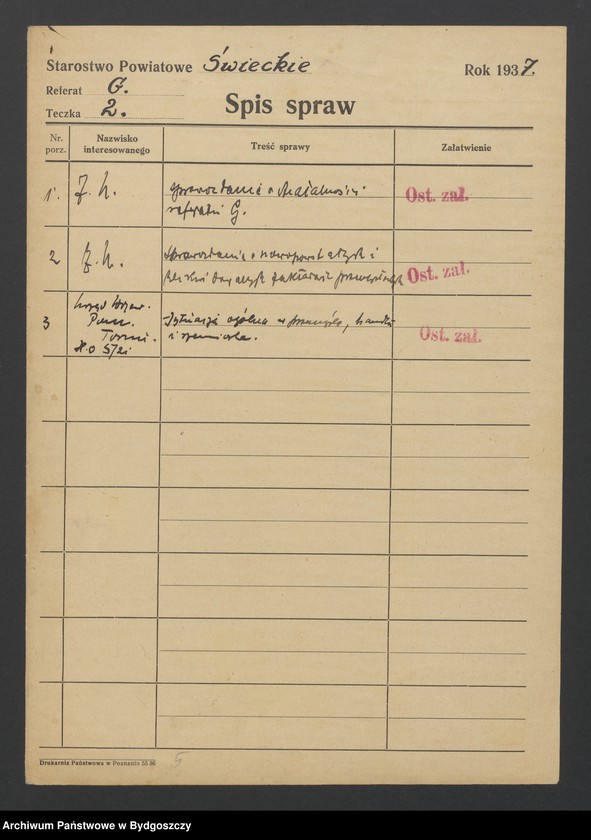 Starostwo Powiatowe Świeckie
Rok 1937.
Referat G.
Teczka 2.
Spis spraw
Nr. porz.
Nazwisko interesowanego
Treść sprawy
Załatwienie
1.
Sprawozdania o działalności
referatu G.
Ost. zał.
2
Sprawozdania o nowopowstałych i
Ost. zał.
3
Urząd Wojew.
Pom.
Toruń.
Sytuacja ogólna w przemyśle, handlu
i rzemiośle.
Ost. zał.
Drukarnia Państwowa w Poznaniu 55 36
5
Archiwum Państwowe w Bydgoszczy